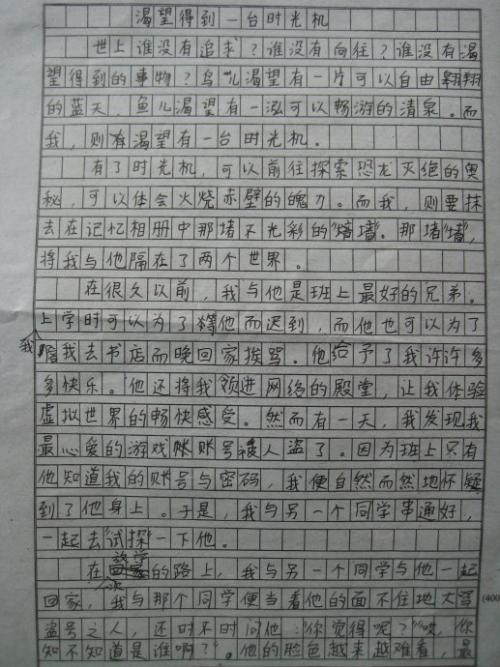 渴望得到一台时光机
世上谁没有追求？谁没有向往？谁没有渴
望得到的事物？鸟儿渴望有一片可以自由翱翔
的蓝天，鱼儿渴望有一泓可以畅游的清泉。而
我，则有渴望有一台时光机。
有了时光机，可以前往探索恐龙灭绝的奥
秘，可以体会火烧赤壁的魄力。而我，则要抹
去在记忆相册中那堵不光彩的“墙”。那堵“墙”，
将我与他隔在了两个世界。
在很久以前，我与他是班上最好的兄弟。
我上学时可以为了等他而迟到，而他也可以为了
陪我去书店而晚回家挨骂。他给予了我许许多
多快乐。他还将我领进网络的殿堂，让我体验
虚拟世界的畅快感受。然而有一天，我发现我
最心爱的游戏账号被人盗了。因为班上只有
他知道我的账号与密码，我便自然而然地怀疑
到了他身上。于是，我与另一个同学串通好，
一起去“试探”一下他。
在放学的路上，我与另一个同学与他一起
回家，我与那个同学便当着他的面不住地大骂
(400
盗号之人，还时不时问他：“你觉得呢？”“哎，你
知不知道是谁啊？”。他的脸色越来越难看，最